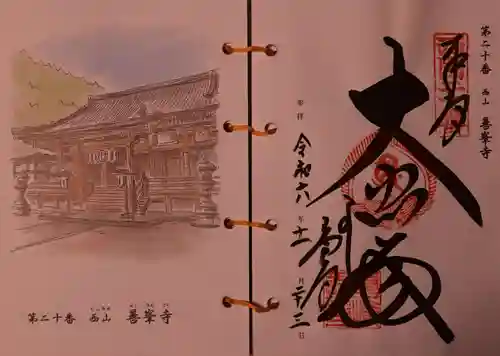 第二十番 西山 善峯寺
大悲殿
奉拝 令和六年十一月二十三日
第二十番 西山 善峯寺